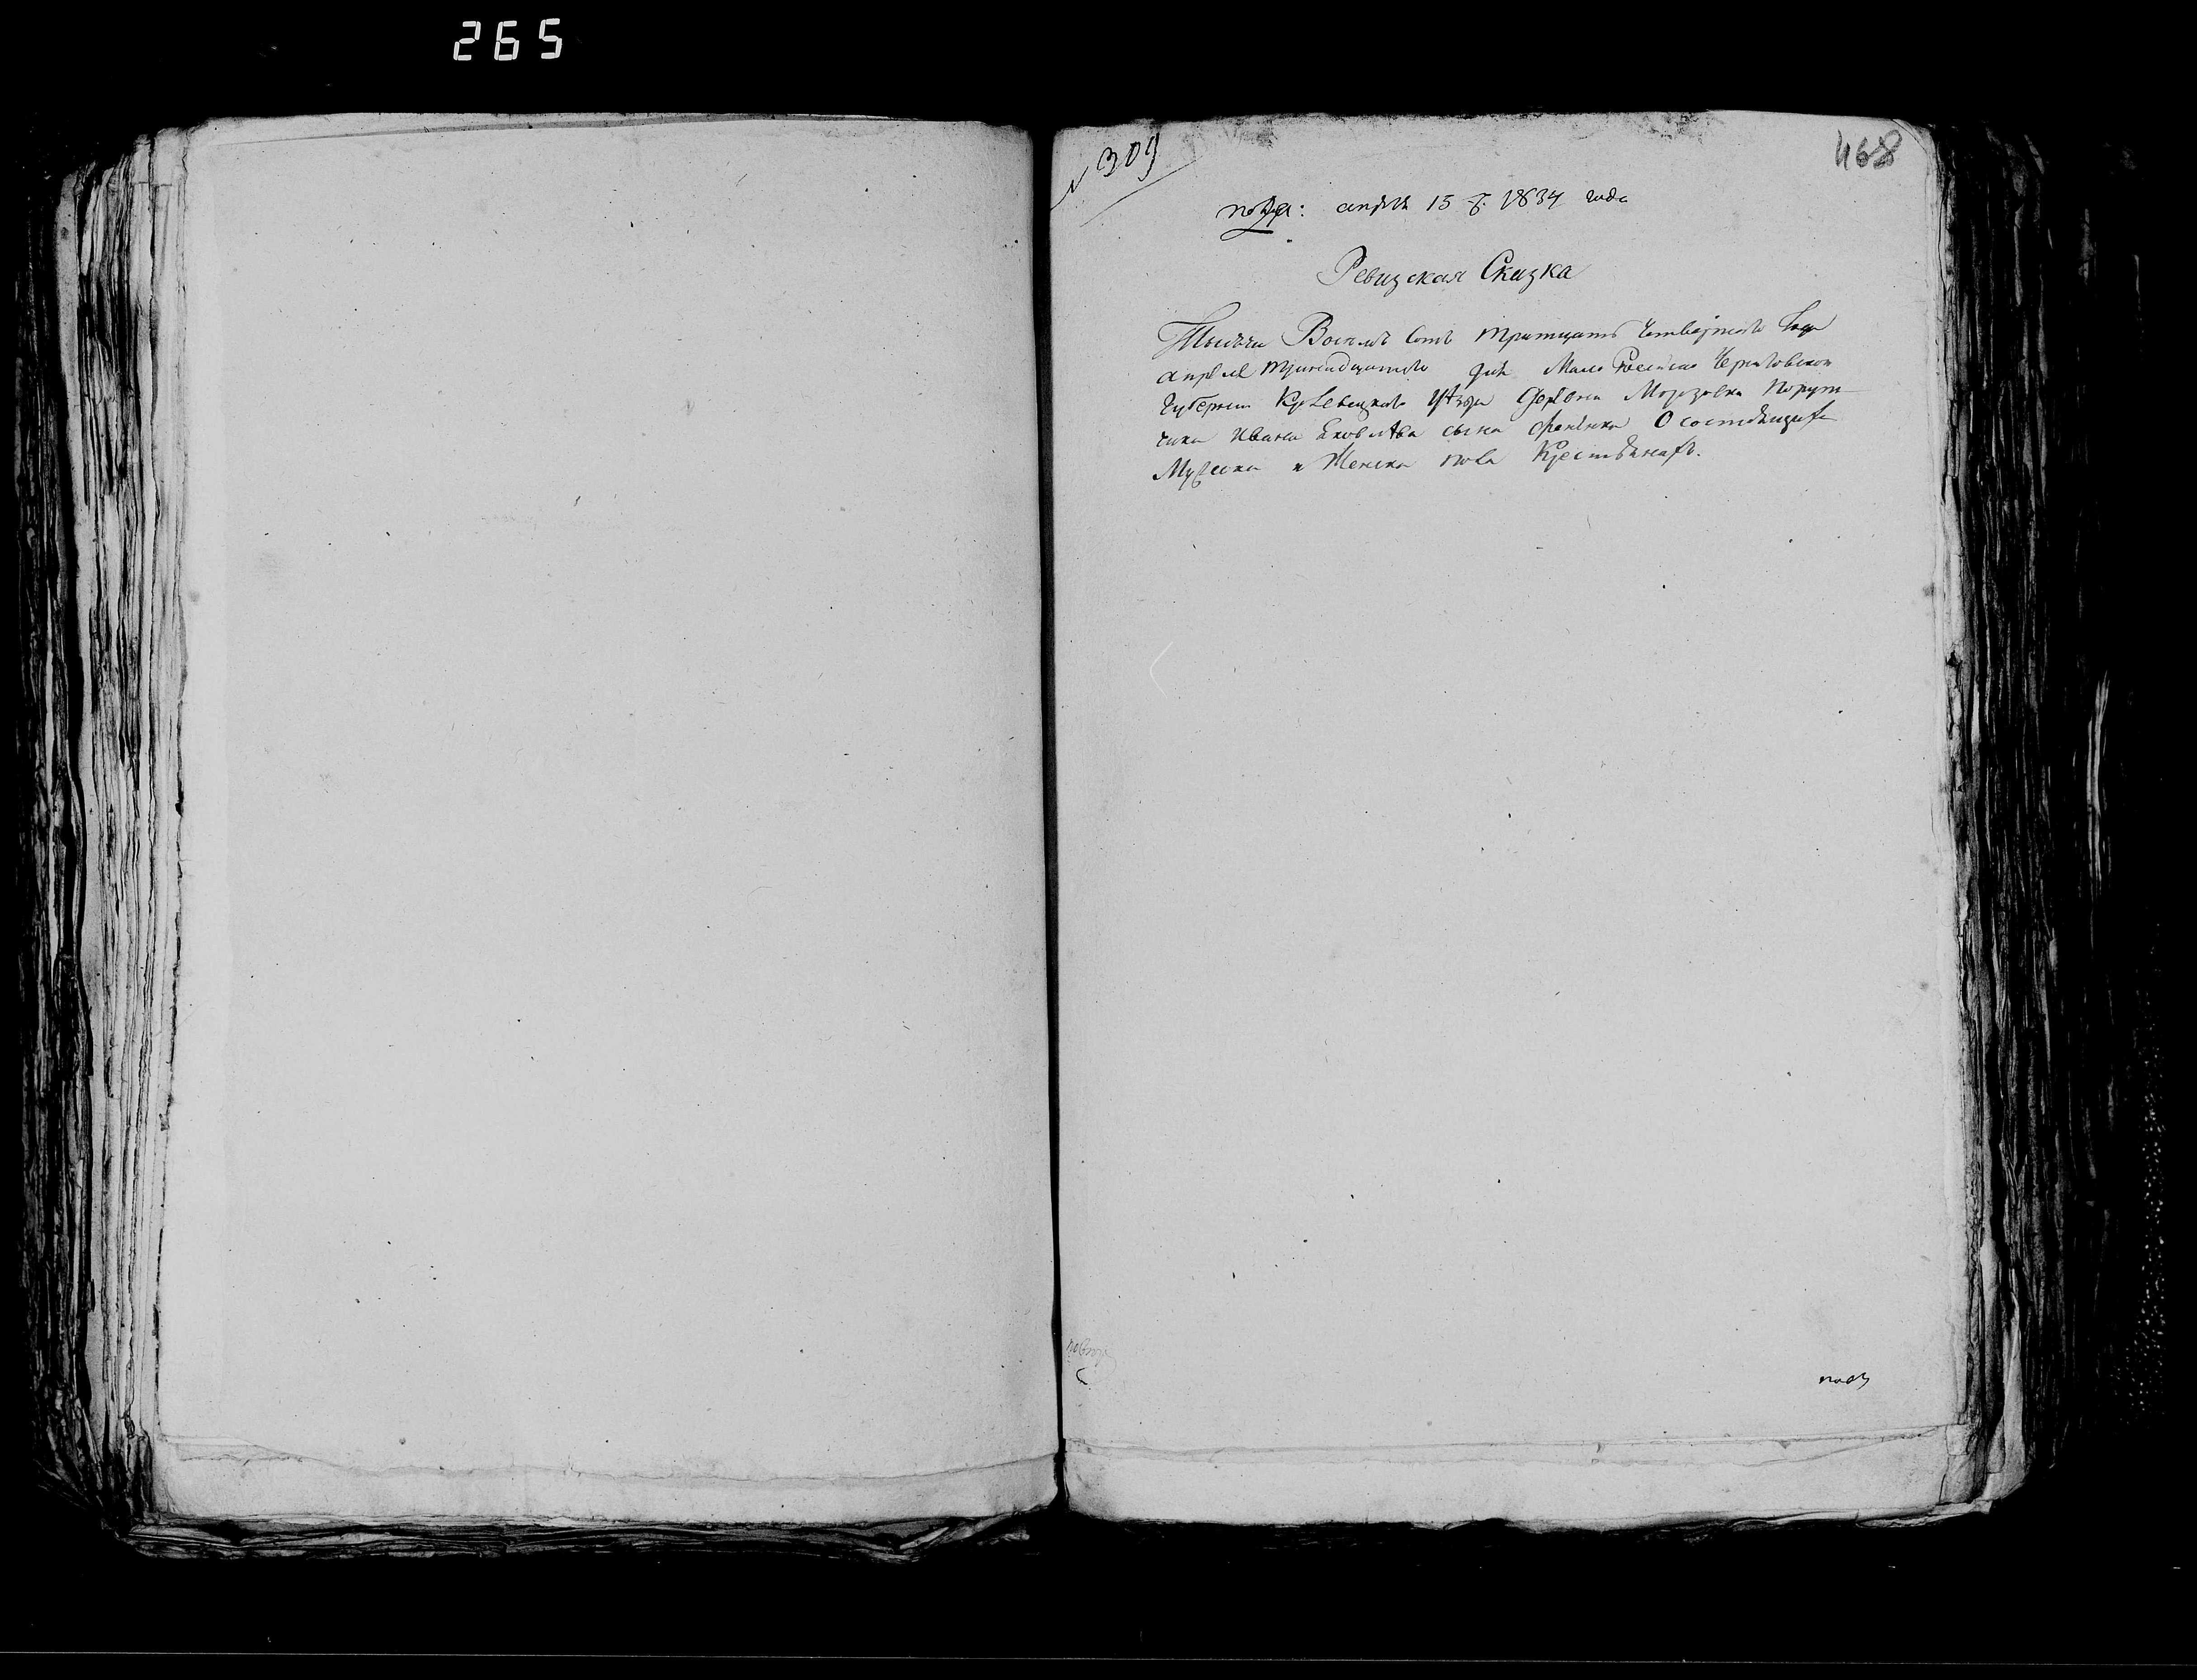 265
№ 309
468
пода: апреля 15 д. 1834 года
Ревизская Сказка
Тысяча Восемь Сотъ тритцать Четвертого Года
апреля тринадцатого дня Мало Российско Черниговской
Губернии Кролевецкого Уѣзда Деревни Морозовки Порут
чика Ивана Яковлѣва сына О состоящихъ
Мужеска и Женска пола Крестьянахъ.